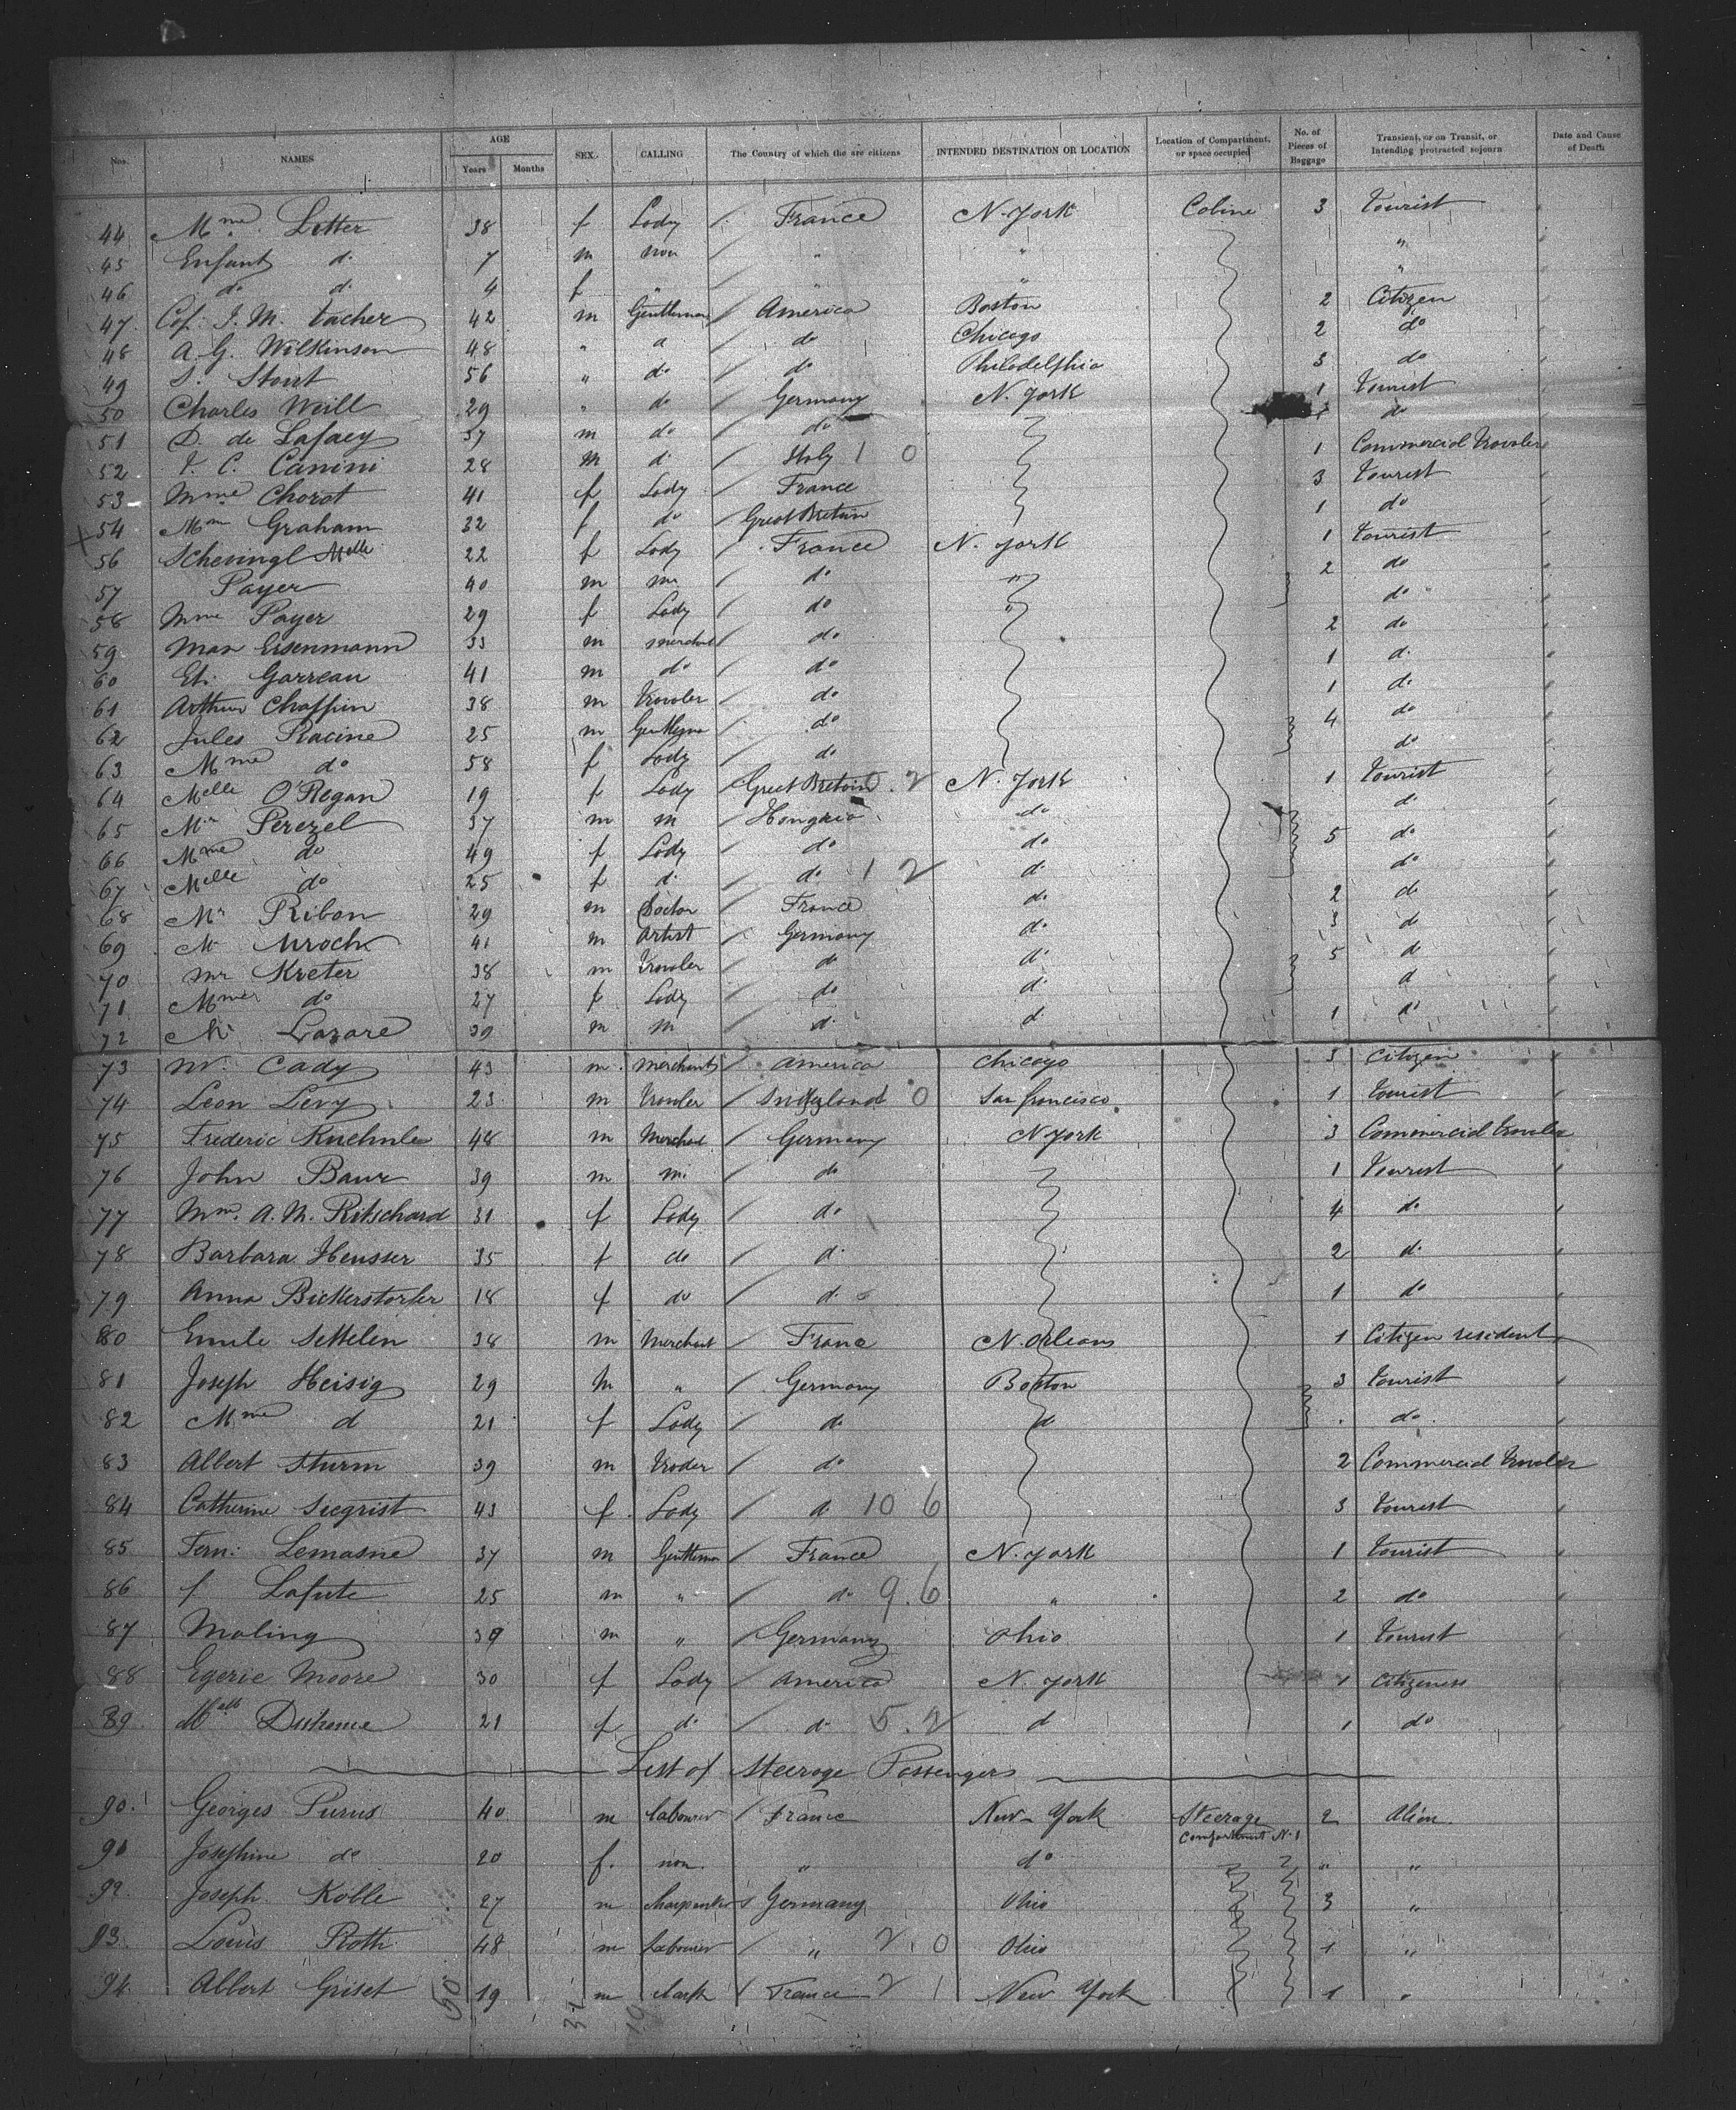 Nos. NAMES AGE Years Months SEX. CALLING The Country of which the are citizens INTENDED DESTINATION OR LOCATION Location of Compartment, or space occupied No. of Pieces of Baggage Transient, or on Transit, or Intending protracted sojourn Date and Cause of Death
44 Mme Litter 38 f Lady France N. York Cabine 3 tourist
45 Enfant do 7 m non " " "
46 do do 4 f " " " "
47 J. M. Vacher 42 m Gentleman America Boston 2 Citizen
48 A. G. Wilkinson 48 " do Chicago 2 do
49 S. Stout 56 " do do Philadelphia 3 do
50 Charles Weill 29 " do Germany N. York 1 tourist
51 D. de Lafaey 37 m do do do
52 V. C. Canini 28 m d. Italy 1 0 1 Commercial traveler
53 Mme Chorot 41 f Lady France 3 tourist
54 Mm Graham 32 f do Great Bretain 1 do
56 Scheringl Melle 22 f Lady France N. York 1 tourist
57 Payer 40 m m. do " 2 do
58 Mme Payer 29 f Lady do " do
59 Max Eisenmann 33 m merchant do 2 do
60 Et. Garreau 41 m do do 1 d.
61 Arthur Chaffin 38 m traveler do 1 d.
62 Jules Racine 25 m Gentleman do 4 do
63 Mme do 58 f Lady do do
64 Melle O'Regan 19 f Lady Great Bretain 2 N. York 1 tourist
65 Mr Perezel 37 m m Hongria do do
66 Mme do 49 f Lady do do 5 do
67 Melle do 25 f d. do 1 2 d. do
68 Mr Ribon 29 m Doctor France do 2 do
69 M. Mroch 41 m Artist Germany do 3 do
70 mr Kreter 38 m traveler do d. 5 do
71 Mme do 27 f Lady do d. d
72 Mr Lazare 39 m m d. d 1 d.
73 mr Cady 43 m merchants America Chicago 3 Citizen
74 Leon Levy 23 m traveler Switzerland 0 San francisco 1 tourist
75 Frederic Kuehnle 48 m Merchant Germany N York 3 Commercial traveler
76 John Baur 39 m m. do 1 tourist
77 Mm. A. M. Ritschard 31 f Lady do 4 do
78 Barbara Heusser 35 f do d. 2 d.
79 Anna Bickerstorfer 18 f do d. 1 do
80 Emile Settelen 38 m Merchant France N. Orleans 1 Citizen resident
81 Joseph Heisig 29 m " Germany Boston 3 tourist
82 Mme d 21 f Lady do do do
83 Albert Sturm 39 m trader do 2 Commercial traveler
84 Catherine Siegrist 43 f Lady d. 10 6 3 tourist
85 Fern: Lemasne 37 m Gentleman France N. York 1 tourist
86 f Lafute 25 m " do 9.6 " 2 do
87 Maling 39 m " Germany Ohio 1 tourist
88 Egerie Moore 30 f Lady America N. York 1 Citizeness
89 Mell 21 f d. d. 5.2 d 1 do
List of Steerage Passengers
90. Georges Purus 40 m labourer France New-York Steerage Compartment N. 1 2 Alien
91 Josephine do 20 f. non " do " "
92. Joseph Kölle 27 m Charpenter Germany Ohio 3 "
93. Louis Roth 48 m labourer " 2. 0 Ohio 1 "
94. Albert Griset 19 m clark France 2 1 New York 1 "
50 31 19